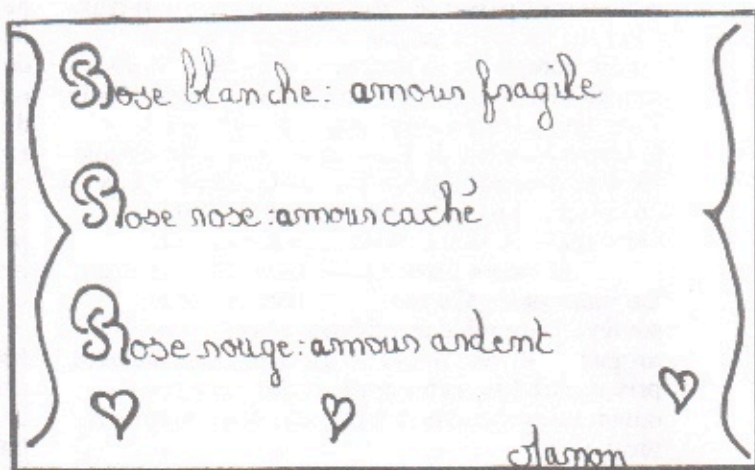 Rose blanche: amour fragile
Rose rose: amour caché
Rose rouge: amour ardent
Manon